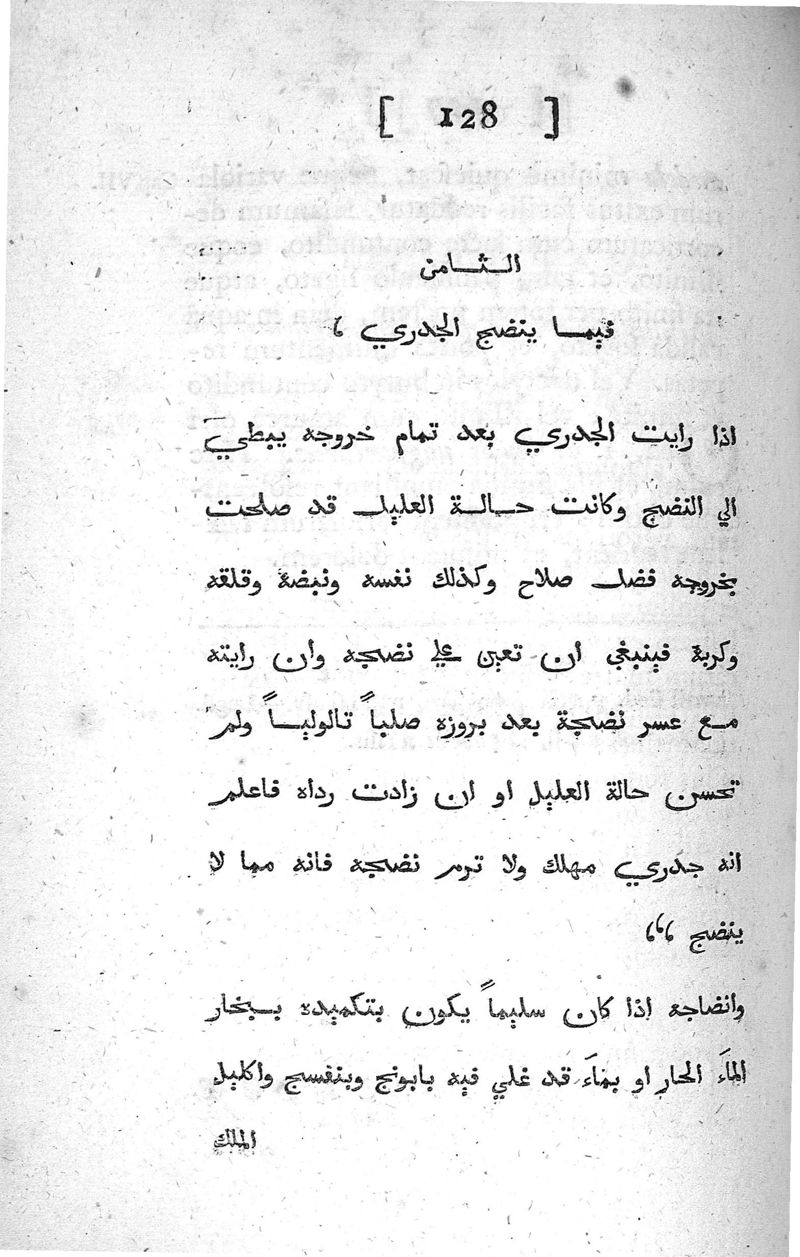 [ 128 ]
الـثـامن
فيما ينضج الجدري ،
اذا رايت الجدري بعد تمام خروجه يبطي
الي النضج وكانت حـالـة العليل قد صلحت
بخروجه فضل صلاح وكذلك نفسه ونبضة وقلقه
وكربة فينبغي ان تعين علي نضجه وان رايته
مع عسر نضجة بعد بروزه صلباً تالوليـاً ولم
تحسن حالة العليل او ان زادت رداه فاعلم
انه جدري مهلك ولا ترم نضجه فانه مما لا
ينضج ،،،
وانضاجه اذا كان سليماً يكون بتكميده بـبخار
المآَ الحار او بماَء قد غلي فيه بابونج وبنفسج واكليل
الملك